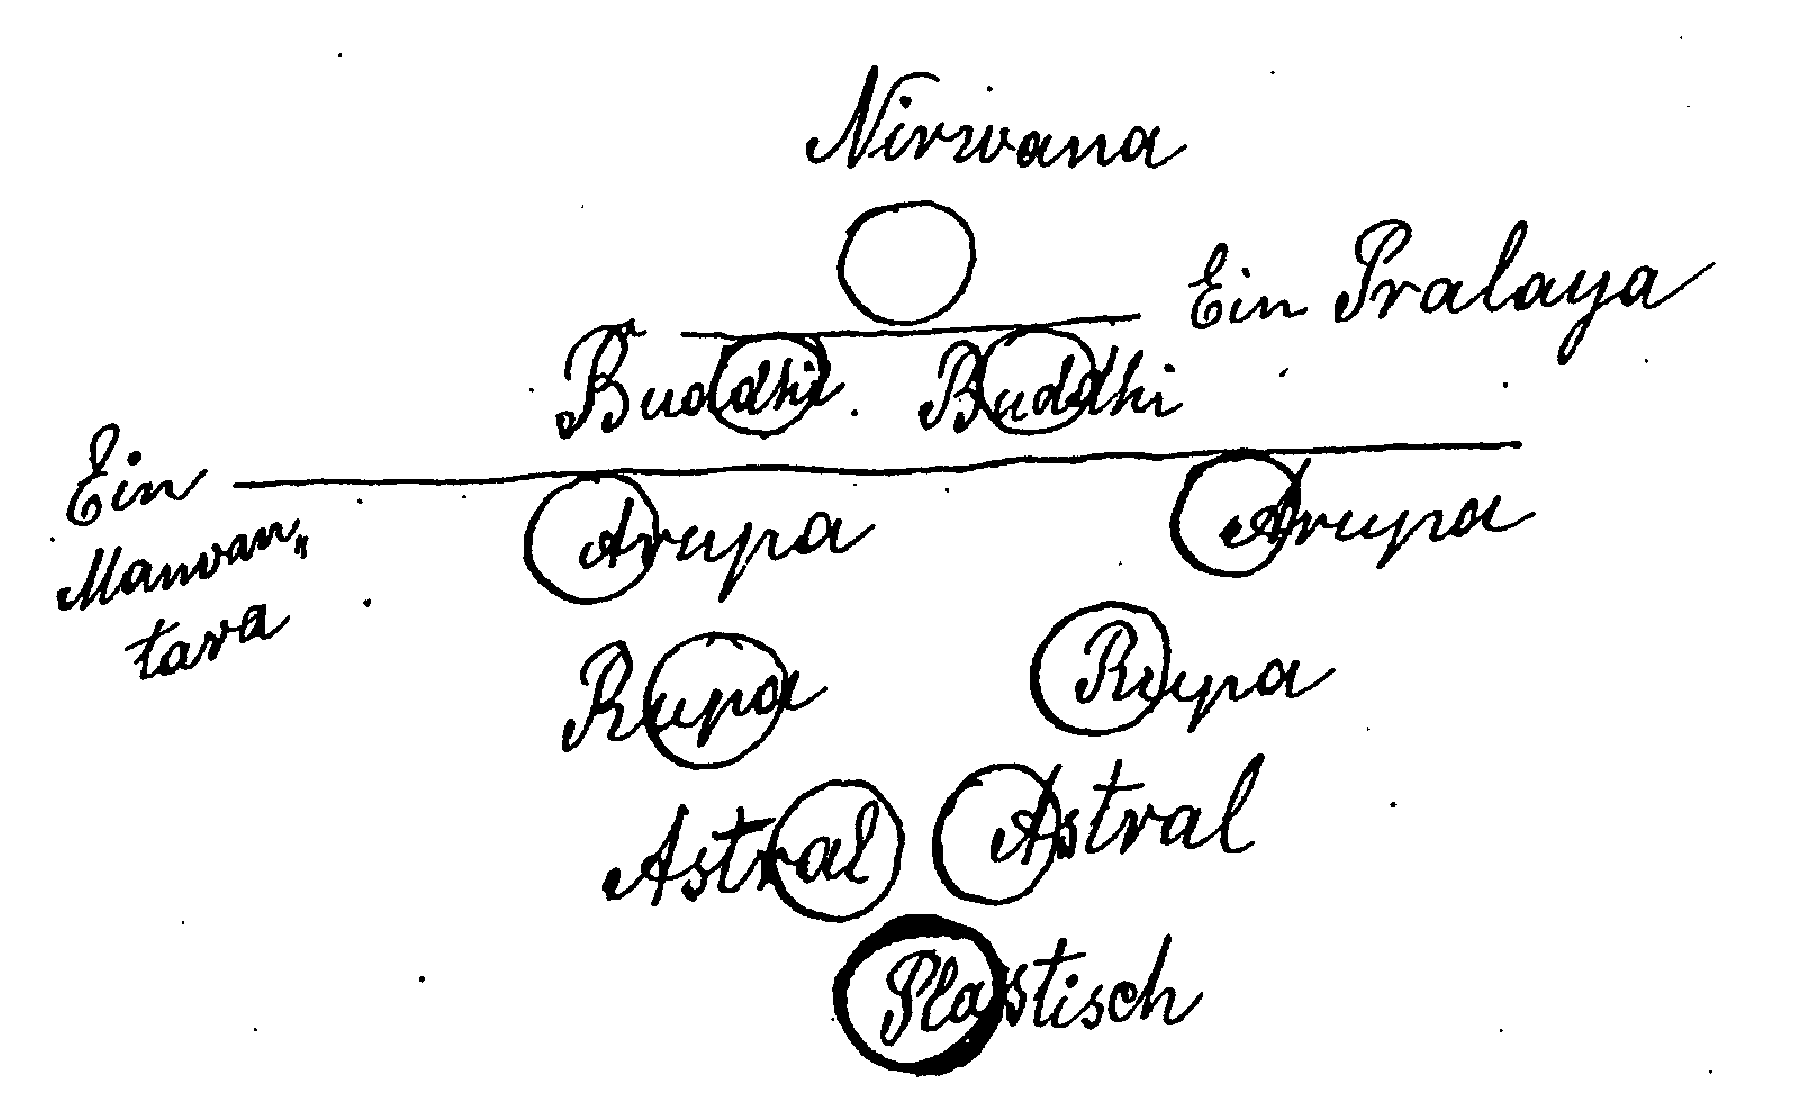 Nirwana
Ein Pralaya
Buddhi. Buddhi
Ein
Manvan„
tara
Arupa Arupa
Rupa Rupa
Astral Astral
Plastisch